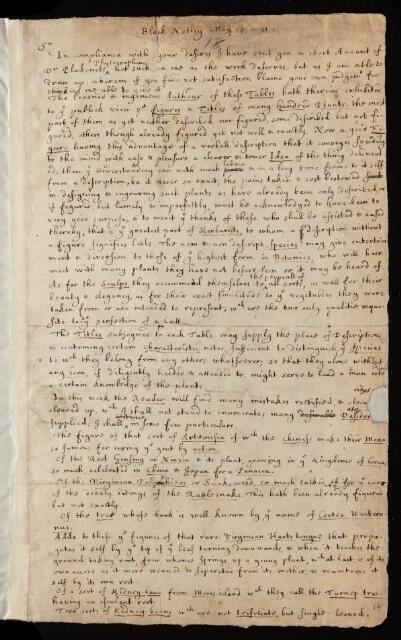 Black Notley May 19. - 91.
Sr
In compliance with your desires I have sent you a short Account of
Dr Plukenets Phytographia, not such an one as the work deserves, but as I am able to
draw up, wherein if you find not satisfaction blame your own judgmt for
thinking me able to give it
The learned & ingenious Authour of these Tables hath therein exhibited
to ye publick view ye figures & Titles of many hundred Plants, the most
part of them as yet neither described nor figured, some described but not fi-
gured, others though already figured yet not well & exactly. Now a good Fi-
gure having this advantage of a verbal description that it conveyes speedily
to the mind with ease & pleasure a clearer & truer Idea of the thing delineat-
ed, then ye understanding can with much labour & in a long time frame to it self
from a description, be it never so exact; the pains taken & cost bestowed
in designing & engraving such plants as have already been only described, or
if figured but lamely & imperfectly, must be acknowledged to have been to
very good purpose, & to merit ye thanks of those who shall be assisted & eased
thereby, that is ye greatest part of Herbarists, to whom a description without
a figure signifies little. The new & non descript Species may give entertain-
ment & diversion to those of ye highest form in Botanics, who will here
meet with many plants they have not before seen or it may be heard of.
As for the Sculps they recommend themselves to the perusall of all sorts, as well for their
beauty & elegancy, as for their exact similitude to ye vegetables they were
taken from or are intended to represent, wch are the two only qualities requi-
site to ye perfection of a Cutt.
The Titles subjoyned to each Table may supply the place of Descriptions,
as containing certain characteristic notes, sufficient to distinguish ye Species
to wch they belong from any other whatsoever, so that they alone without
any icon, if diligently heeded & attended to, might serve to lead a man into
a certain knowledge of the plant.
In this work the Reader will find many mistakes rectified, & obscu-
rities
cleared up, wch I shall not stand to enumerate, many
supplied, I shall instance in some few particulars.
The figure of that sort of Artemisia of wch the Chinese make their Moxa
so famous for curing ye gout by ustion.
Of the Root Genseng or Ninzin & its plant, growing in ye Kingdome of Corea,
so much celebrated in China & Japan for a Panacea.
Of the Virginian or Snakeweed so much talked of for ye cure
of the deadly bitings of the Rattle snake. This hath been already figured
but not exactly.
Of the tree whose bark is well known by ye name of Cortex Wintera-
nus.
Adde to these ye figures of that rare Virginian Hartstongue that propa-
gates it self by ye tip of ye leaf turning downwards, & when it touches the
ground taking root from whence springs up a young plant, wch at last is of its
own accord as it were weaned & separated from its mother & maintains it
self by its own root.
Of a sort of Kidney-bean from island wch they call the Turnep tree
having an esculent root
Two sorts of Kidney beans wch are not trifoliate, but single leaved.